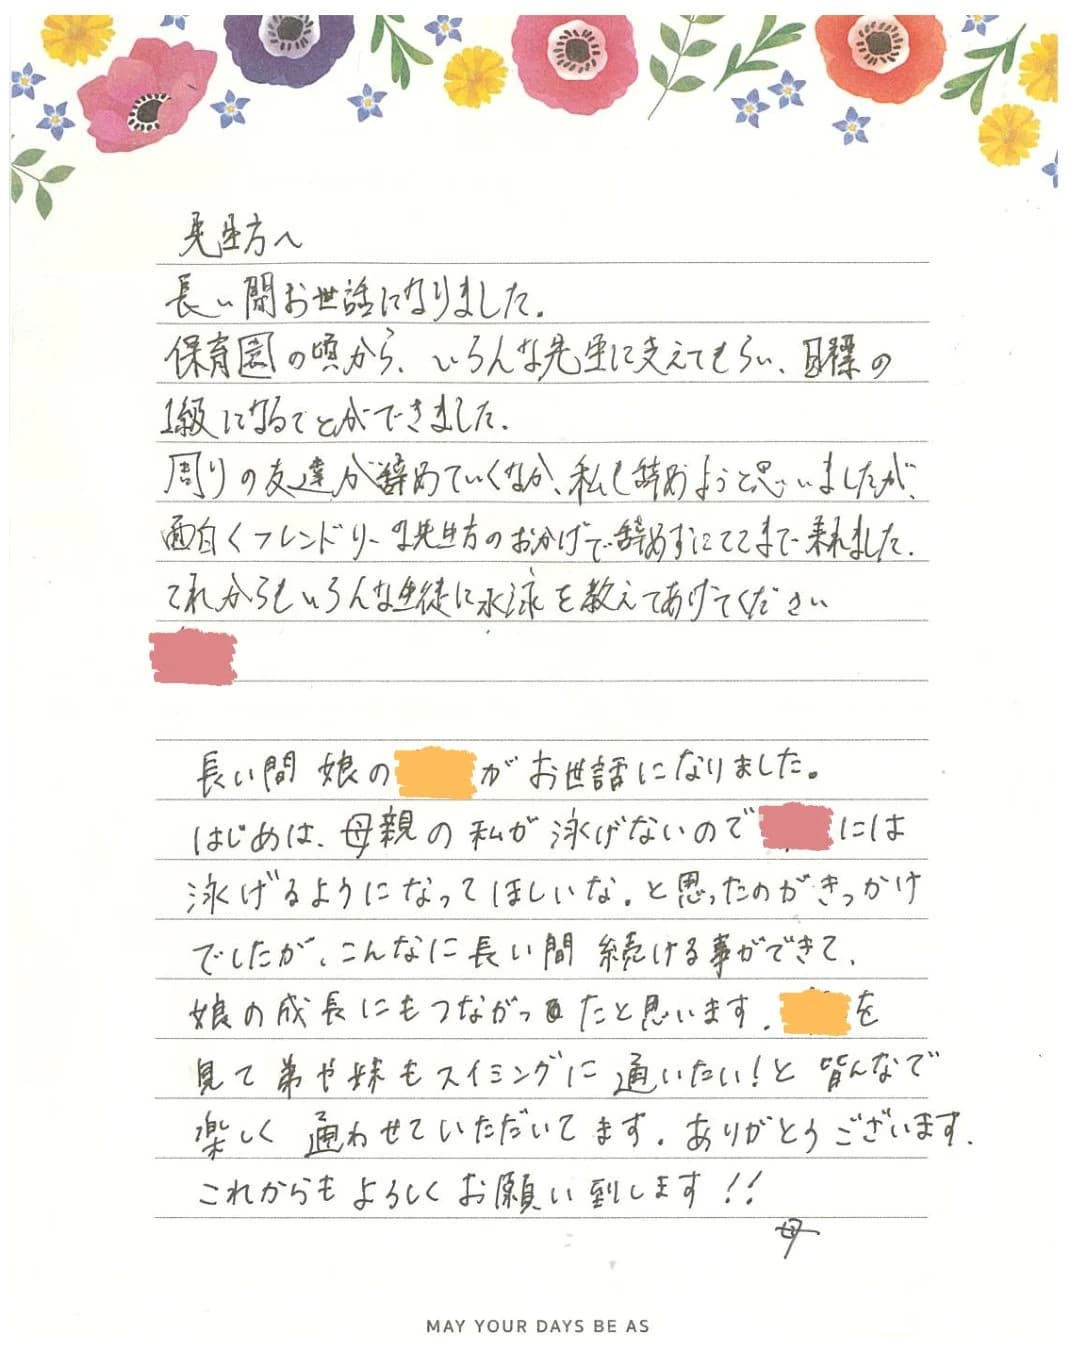 先生方へ
長い間お世話になりました。
保育園の頃から、いろんな先生に支えてもらい、目標の
1級になることができました。
周りの友達が辞めていくなか、私も辞めようと思いましたが、
面白くフレンドリーな先生方のおかげで辞めずにここまで来れました。
これからもいろんな生徒に水泳を教えてあげてください
長い間 娘の がお世話になりました。
はじめは、母親の私が泳げないので には
泳げるようになってほしいな。と思ったのがきっかけ
でしたが、こんなに長い間 続ける事ができて、
娘の成長にもつながったと思います。 を
見て弟や妹もスイミングに通いたい！と皆んなで
楽しく 通わせていただいてます。ありがとうございます。
これからもよろしくお願い致します！！
母
MAY YOUR DAYS BE AS